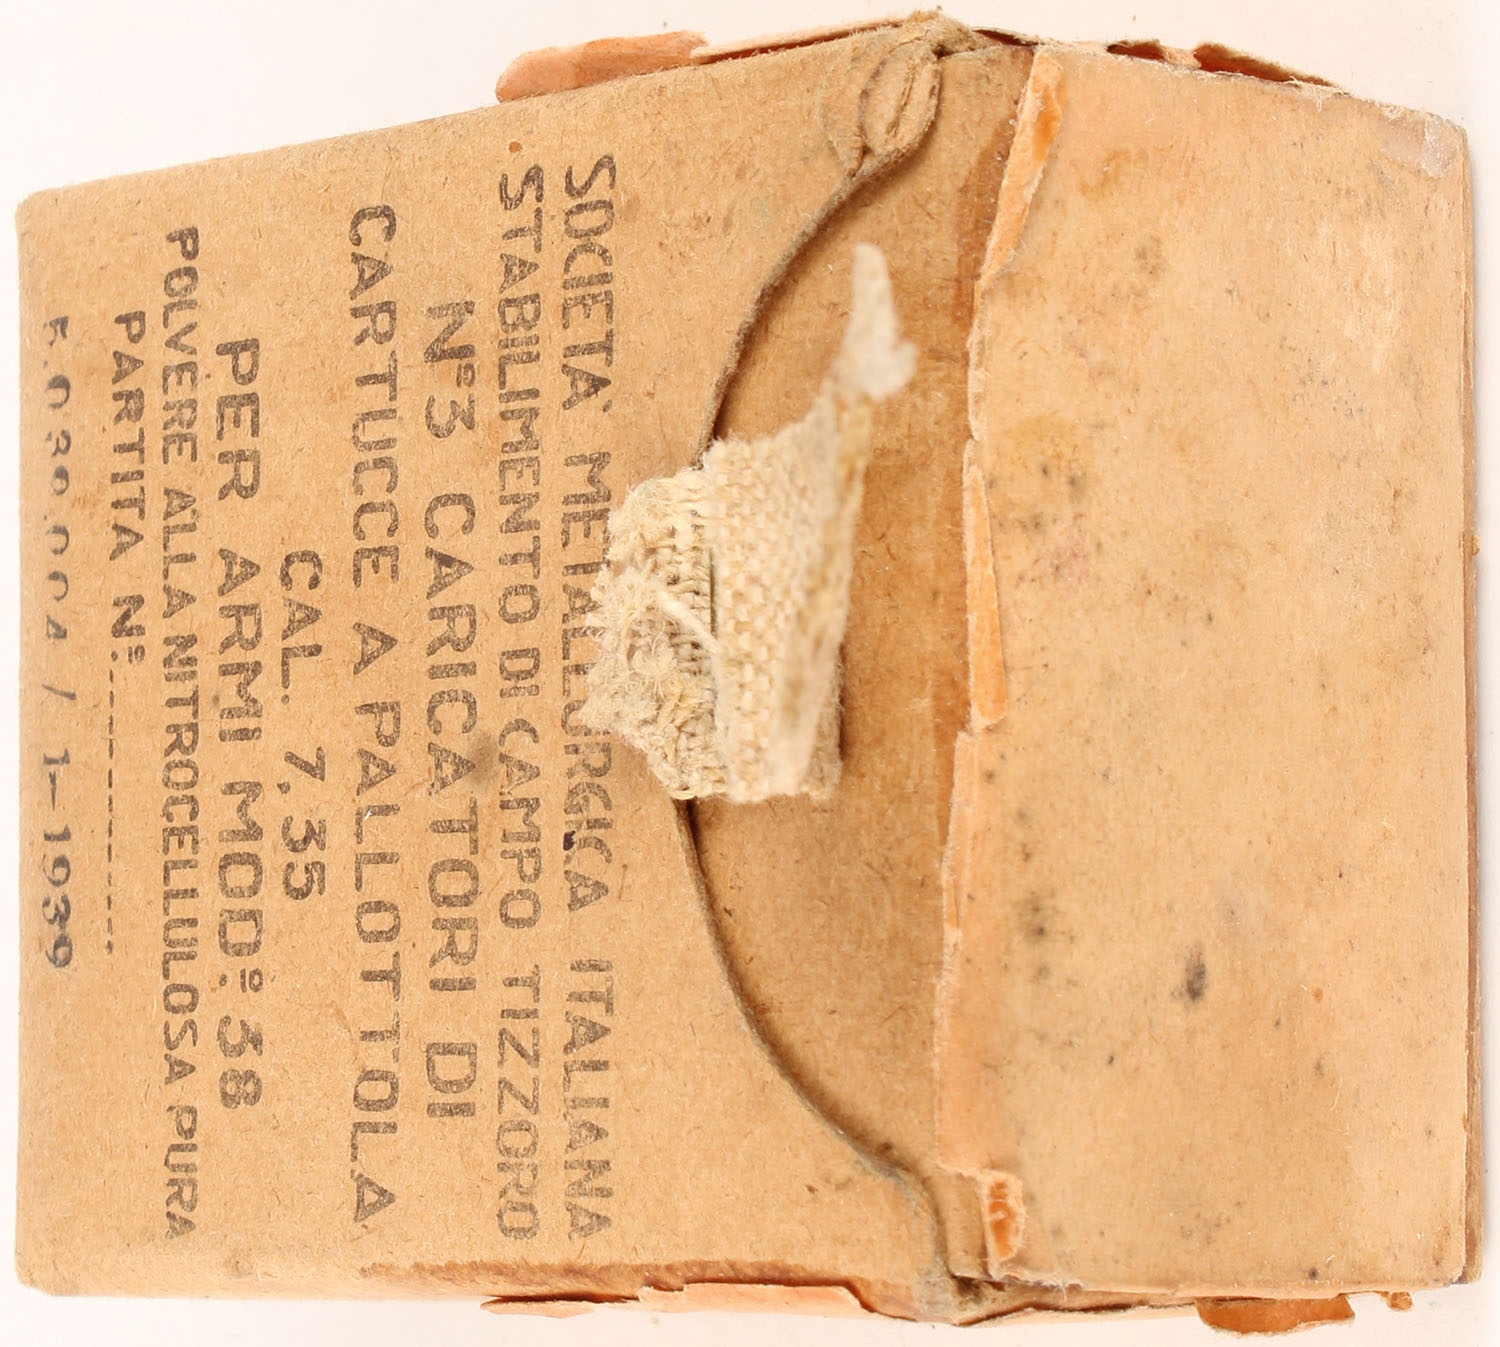 SOCIETÀ METALLURGICA ITALIANA
STABILIMENTO DI CAMPO TIZZORO
Nº 3 CARICATORI DI
CARTUCCE A PALLOTTOLA
CAL. 7,35
PER ARMI MOD.º 38
POLVERE ALLA NITROCELLULOSA PURA
PARTITA Nº
/ 1-1939